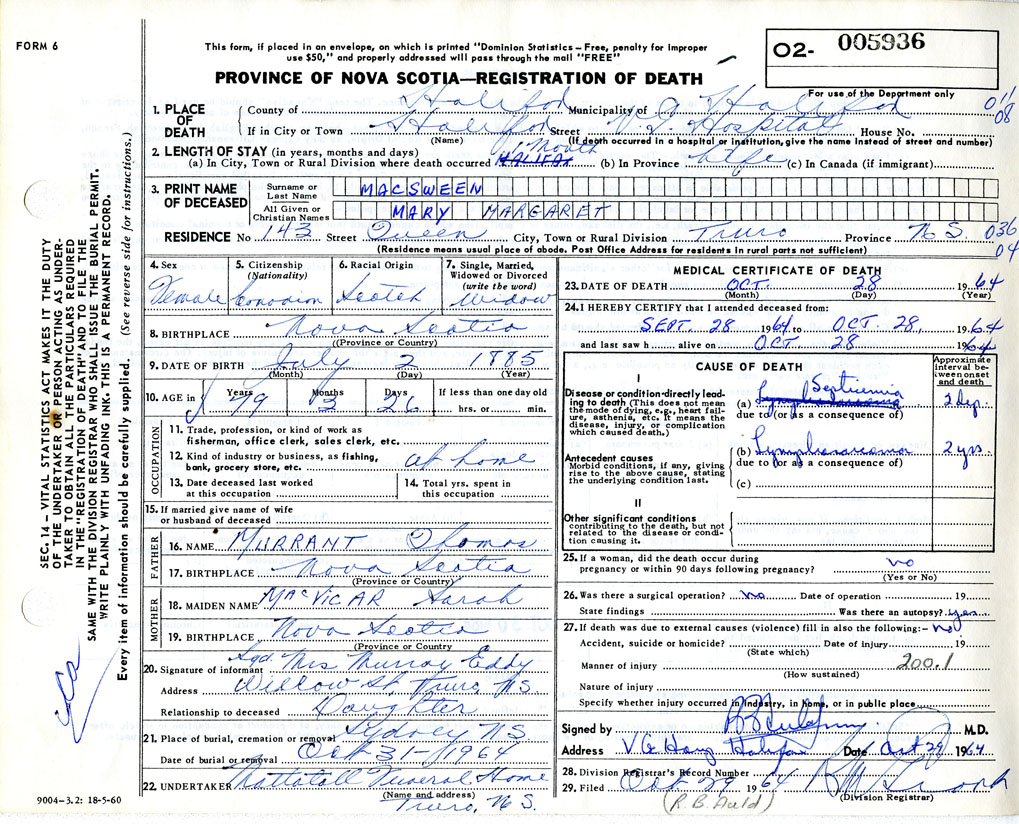 FORM 6
This form, if placed in an envelope, on which is printed "Dominion Statistics – Free, penalty for improper
use $50," and properly addressed will pass through the mail "FREE"
PROVINCE OF NOVA SCOTIA—REGISTRATION OF DEATH
O2- 005936
For use of the Department only
011
08
SEC. 14 – VITAL STATISTICS ACT MAKES IT THE DUTY
OF THE UNDERTAKER OR PERSON ACTING AS UNDER-
TAKER TO OBTAIN ALL THE PARTICULARS REQUIRED
IN THE "REGISTRATION OF DEATH" AND TO FILE THE
SAME WITH THE DIVISION REGISTRAR WHO SHALL ISSUE THE BURIAL PERMIT.
WRITE PLAINLY WITH UNFADING INK. THIS IS A PERMANENT RECORD.
Every item of information should be carefully supplied. (See reverse side for instructions.)
1. PLACE OF DEATH
County of Halifax Municipality of Halifax
If in City or Town Halifax Street V.G. Hospital House No.
(Name) (If death occurred in a hospital or institution, give name instead of street and number)
2. LENGTH OF STAY (in years, months and days) 1 Month
(a) In City, Town or Rural Division where death occurred HALIFAX (b) In Province Life (c) In Canada (if immigrant)
3. PRINT NAME OF DECEASED
Surname or Last Name MACSWEEN
All Given or Christian Names MARY MARGARET
RESIDENCE No 143 Street Queen City, Town or Rural Division Truro Province N S 036
04
(Residence means usual place of abode. Post Office Address for residents in rural parts not sufficient)
4. Sex Female
5. Citizenship (Nationality) Canadian
6. Racial Origin Scotch
7. Single, Married, Widowed or Divorced (write the word) Widow
8. BIRTHPLACE Nova Scotia
(Province or Country)
9. DATE OF BIRTH July 2 1885
(Month) (Day) (Year)
10. AGE in Years 79 Months 3 Days 26 If less than one day old
hrs. or min.
OCCUPATION
11. Trade, profession, or kind of work as
fisherman, office clerk, sales clerk, etc.
12. Kind of industry or business, as fishing,
bank, grocery store, etc. at home
13. Date deceased last worked
at this occupation
14. Total yrs. spent in
this occupation
15. If married give name of wife
or husband of deceased
FATHER
16. NAME MURRANT Thomas
17. BIRTHPLACE Nova Scotia
(Province or Country)
MOTHER
18. MAIDEN NAME MACVICAR Sarah
19. BIRTHPLACE Nova Scotia
(Province or Country)
20. Signature of informant Sgd. Mrs Murray Eddy
Address Willow St, Truro, NS
Relationship to deceased Daughter
21. Place of burial, cremation or removal Sydney N S
Date of burial or removal Oct 31-1964
22. UNDERTAKER Mattatall Funeral Home
(Name and address)
Truro, N S.
9004–3.2: 18-5-60
MEDICAL CERTIFICATE OF DEATH
23. DATE OF DEATH OCT. 28 1964
(Month) (Day) (Year)
24. I HEREBY CERTIFY that I attended deceased from:
SEPT. 28 1964 to OCT. 28, 1964
and last saw h alive on OCT. 28 1964
CAUSE OF DEATH
Approximate interval between onset and death
I
Disease or condition directly leading to death (This does not mean the mode of dying, e.g., heart failure, asthenia, etc. It means the disease, injury, or complication which caused death.)
(a) Septicemia 2 dys.
due to (or as a consequence of)
Antecedent causes
Morbid conditions, if any, giving rise to the above cause, stating the underlying condition last.
(b) Lymphosarcoma 2 yrs.
due to (or as a consequence of)
(c)
II
Other significant conditions
contributing to the death, but not related to the disease or condition causing it.
25. If a woman, did the death occur during
pregnancy or within 90 days following pregnancy? no
(Yes or No)
26. Was there a surgical operation? no Date of operation 19
State findings Was there an autopsy? yes
27. If death was due to external causes (violence) fill in also the following:- no
Accident, suicide or homicide? Date of injury 19
(State which)
Manner of injury 200.1
(How sustained)
Nature of injury
Specify whether injury occurred in Industry, in Home, or in public place
Signed by M.D.
Address V G Hosp Halifax Date Oct 29 1964
28. Division Registrar's Record Number
29. Filed Oct 29 1964
(Division Registrar)
(R. B. Auld)